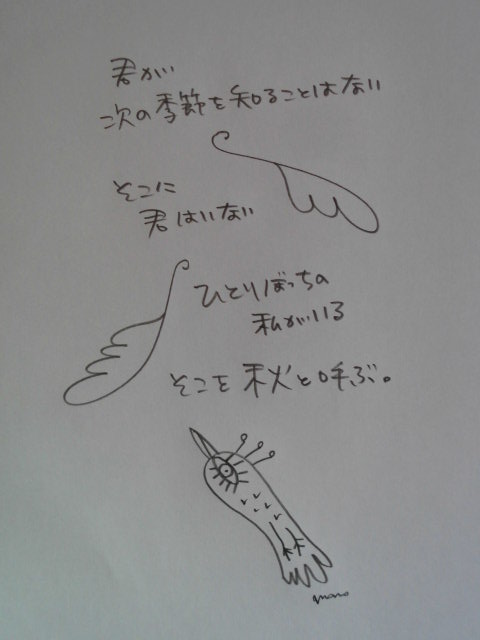 君が
次の季節を知ることはない
そこに
君はいない
ひとりぼっちの
私がいる
そこを秋と呼ぶ。
momo